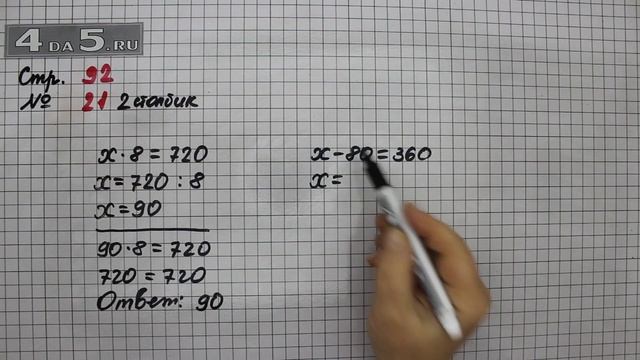 4 DA 5.RU
Стр. 92
№ 21 2 столбик
x · 8 = 720
x = 720 : 8
x = 90
90 · 8 = 720
720 = 720
Ответ: 90
x - 80 = 360
x =